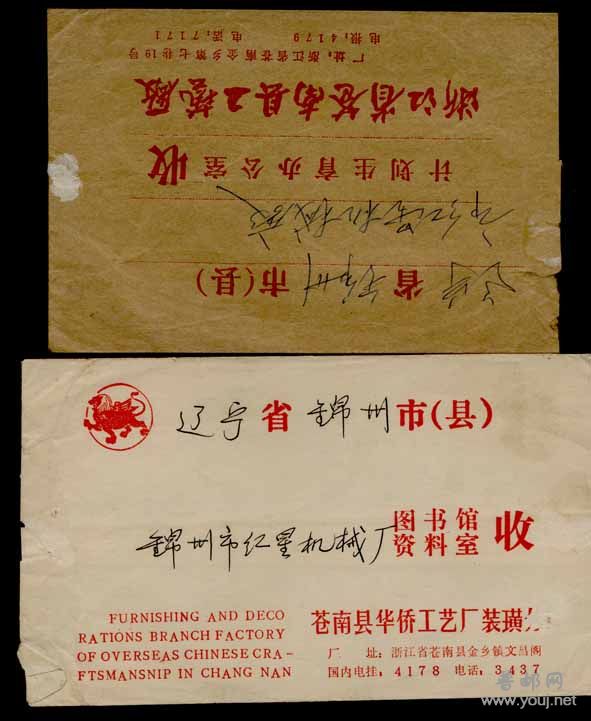 辽宁省锦州市(县)
市红星机械厂
计划生育办公室收
浙江省苍南县工艺厂
厂址:浙江省苍南金乡第七巷19号
电报:4179 电话:7171
辽宁省 錦州市(县)
錦州市红星机械厂 图书馆资料室 收
FURNISHING AND DECO
RATIONS BRANCH FACTORY
OF OVERSEAS CHINESE CRA-
FTSMANSNIP IN CHANG NAN
苍南县华侨工艺厂装璜
厂 址:浙江省苍南县金乡镇文昌阁
国内电挂:4178 电话:3437
普邮网
www.youj.net